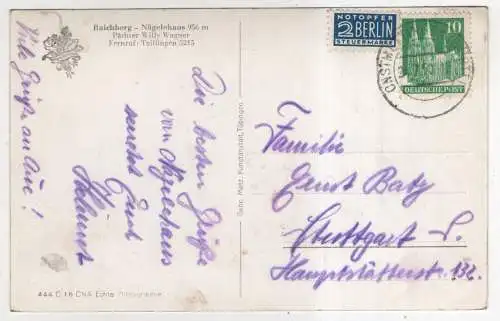 Raichberg - Nägelehaus 956 m
Pächter Willy Wagner
Fernruf: Tailfingen 5215
Viele Grüße an Anne!
Die besten Grüße
von Nägelehaus
sendet Euch
Helmut
Gebr. Metz, Kunstanstalt, Tübingen
444 C 16 CNA Echte Photographie
NOTOPFER
2 BERLIN
STEUERMARKE
10
DEUTSCHE POST
Familie
Ernst Batz
Stuttgart S.
Hauptstätterstr. 132.